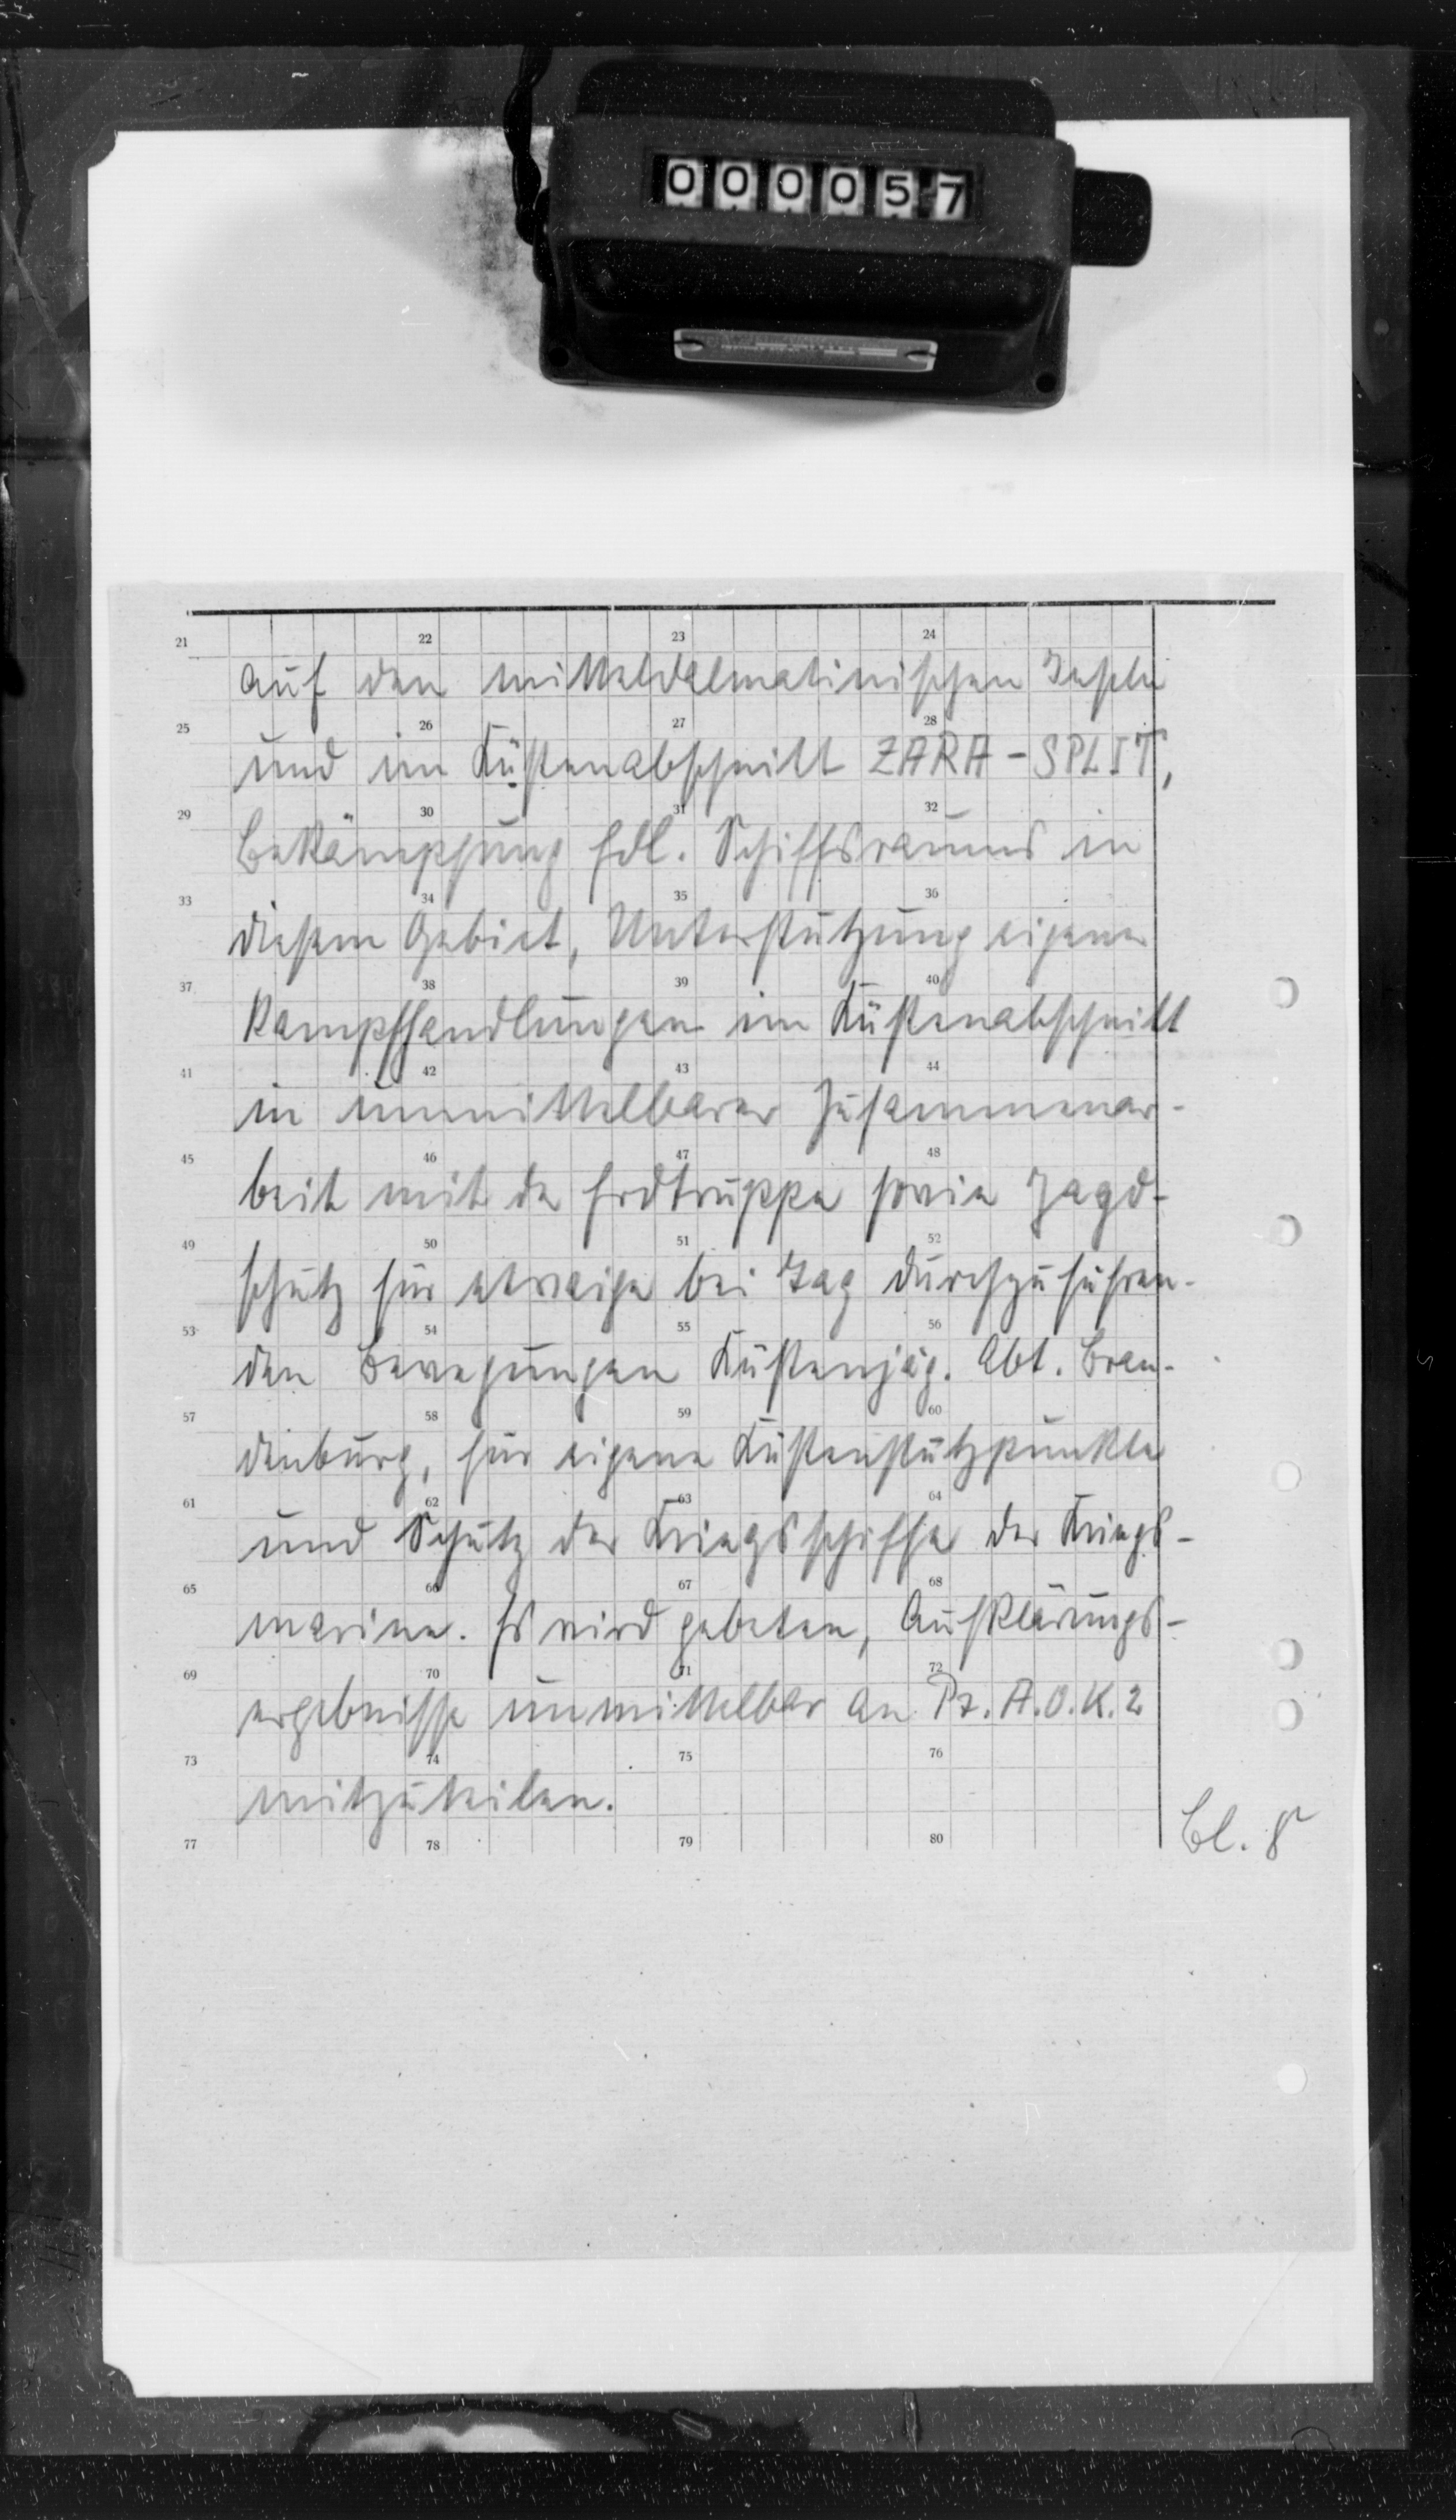 000057
21 22 23 24
auf den mitteldalmatinischen Inseln
25 26 27 28
und im Küstenabschnitt ZARA - SPLIT,
29 30 31 32
Bekämpfung fdl. Schiffsraums in
33 34 35 36
diesem Gebiet, Unterstützung eigener
37 38 39 40
Kampfhandlungen im Küstenabschnitt
41 42 43 44
in unmittelbarer Zusammenar-
45 46 47 48
beit mit der Erdtruppe sowie Jagd-
49 50 51 52
schutz für etwaige bei Tag durchzuführen-
53 54 55 56
den Bewegungen Küstenjäg. Abt. Bran-
57 58 59 60
denburg, für eigene Küstenstützpunkte
61 62 63 64
und Schutz der Kriegsschiffe der Kriegs-
65 66 67 68
marine. Es wird gebeten, Aufklärungs-
69 70 71 72
ergebnisse unmittelbar an Pz. A.O.K. 2
73 74 75 76
mitzuteilen.
77 78 79 80
Bl. 8